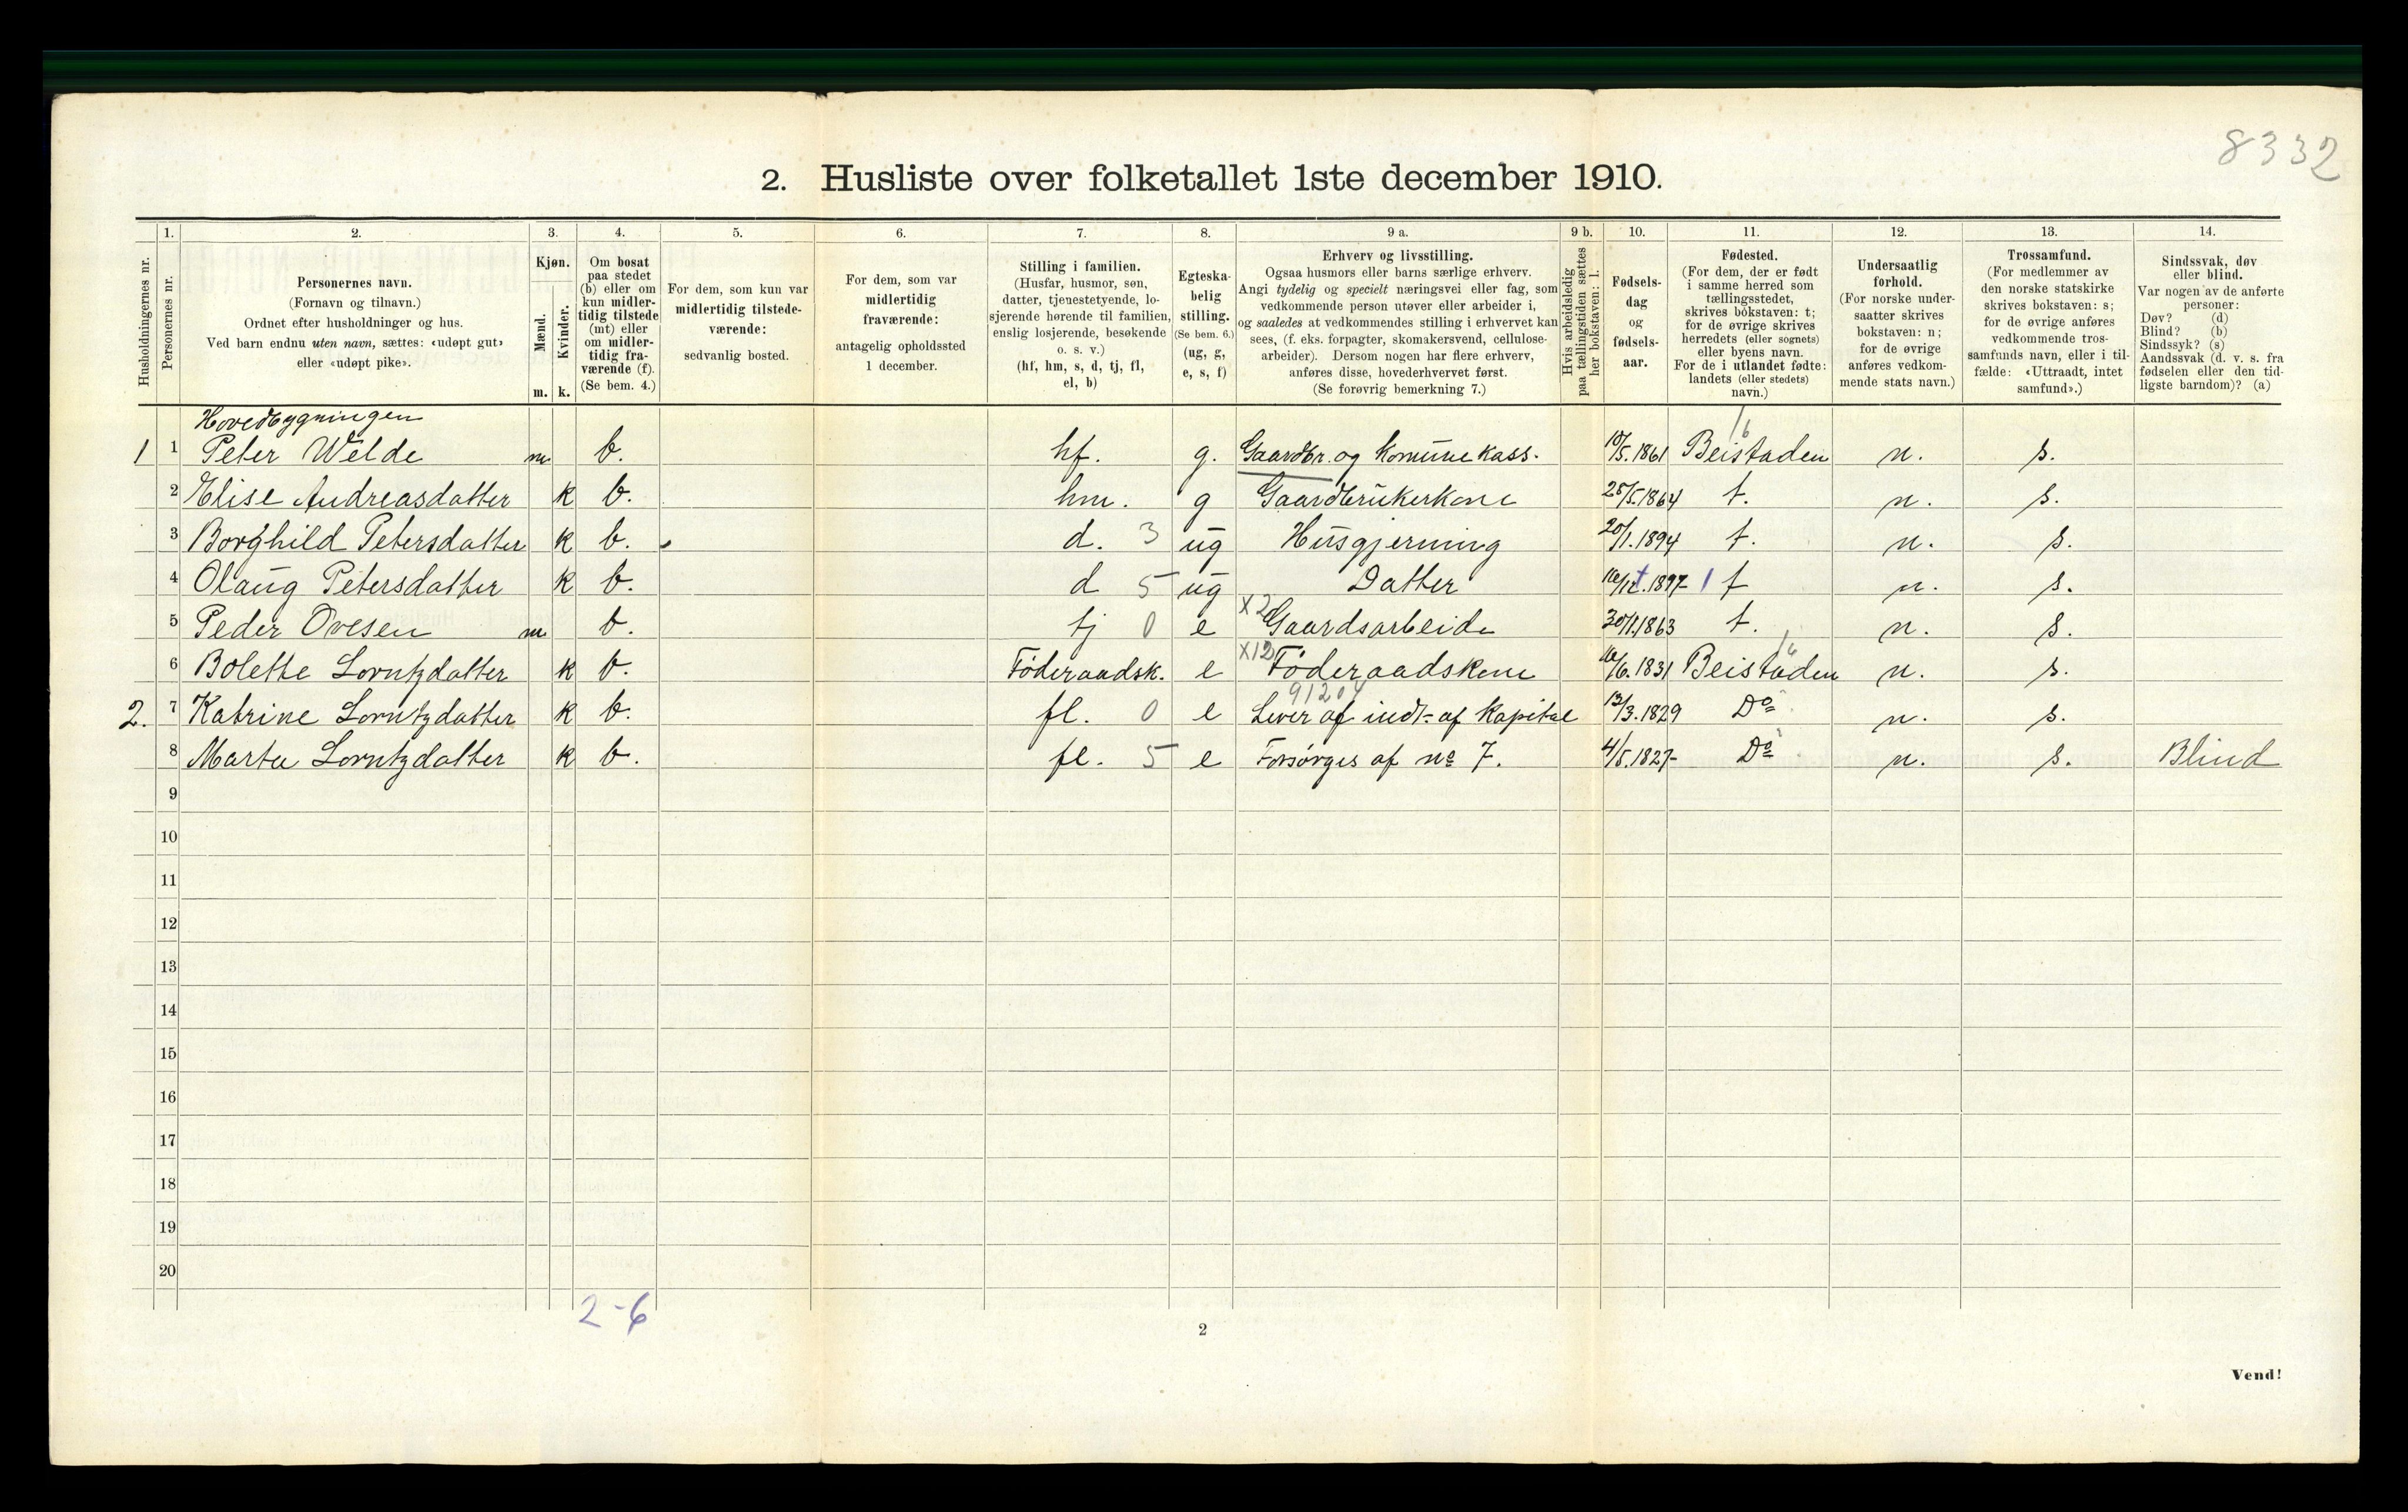 8332
2. Husliste over folketallet 1ste december 1910.
Husholdningernes nr.
1.
Personernes nr.
2.
Personernes navn.
(Fornavn og tilnavn.)
Ordnet efter husholdninger og hus.
Ved barn endnu uten navn, sættes: «udøpt gut»
eller «udøpt pike».
3.
Kjøn.
Mænd.
Kvinder.
m. k.
4.
Om bosat
paa stedet
(b) eller om
kun midler-
tidig tilstede
(mt) eller
om midler-
tidig fra-
værende (f).
(Se bem. 4.)
5.
For dem, som kun var
midlertidig tilstede-
værende:
sedvanlig bosted.
6.
For dem, som var
midlertidig
fraværende:
antagelig opholdssted
1 december.
7.
Stilling i familien.
(Husfar, husmor, søn,
datter, tjenestetyende, lo-
sjerende hørende til familien,
enslig losjerende, besøkende
o. s. v.)
(hf, hm, s, d, tj, fl,
el, b)
8.
Egteska-
belig
stilling.
(Se bem. 6.)
(ug, g,
e, s, f)
9 a.
Erhverv og livsstilling.
Ogsaa husmors eller barns særlige erhverv.
Angi tydelig og specielt næringsvei eller fag, som
vedkommende person utøver eller arbeider i,
og saaledes at vedkommendes stilling i erhvervet kan
sees, (f. eks. forpagter, skomakersvend, cellulose-
arbeider). Dersom nogen har flere erhverv,
anføres disse, hovederhvervet først.
(Se forøvrig bemerkning 7.)
9 b.
Hvis arbeidsledig
paa tællingstiden sættes
her bokstaven: l.
10.
Fødsels-
dag
og
fødsels-
aar.
11.
Fødested.
(For dem, der er født
i samme herred som
tællingsstedet,
skrives bokstaven: t;
for de øvrige skrives
herredets (eller sognets)
eller byens navn.
For de i utlandet fødte:
landets (eller stedets)
navn.)
12.
Undersaatlig
forhold.
(For norske under-
saatter skrives
bokstaven: n;
for de øvrige
anføres vedkom-
mende stats navn.)
13.
Trossamfund.
(For medlemmer av
den norske statskirke
skrives bokstaven: s;
for de øvrige anføres
vedkommende tros-
samfunds navn, eller i til-
fælde: «Uttraadt, intet
samfund».)
14.
Sindssvak, døv
eller blind.
Var nogen av de anførte
personer:
Døv? (d)
Blind? (b)
Sindssyk? (s)
Aandssvak (d. v. s. fra
fødselen eller den tid-
ligste barndom)? (a)
Hovedbygningen
1 1 Peter Welde m b. hf. g. Gaardbr. og Komunekass. 10/5.1861 Beistaden n. s.
2 Elise Andreasdatter k b. hm. g Gaardbrukerkone 1864 t. n. s.
3 Borghild Petersdatter k b. d. 3 ug Husgjerning 20/1.1894 t. n. s.
4 Olaug Petersdatter k b. d 5 ug Datter 1897 1 t n. s.
5 Peder Ovesen m b. tj 0 e X2 Gaardsarbeide 1863 t. n. s.
6 Bolette Lorntzdatter k b. Føderaadsk. e X12 Føderaadskone 1831 Beistaden n. s.
2. 7 Katrine Lorntzdatter k b. fl. 0 e Lever af indt. af Kapital 13/3.1829 Do n. s.
8 Marta Lorntzdatter k b. fl. 5 e Forsørges af no 7. 4/5.1827 Do n. s. Blind
9
10
11
12
13
14
15
16
17
18
19
20
2-6
2
Vend!